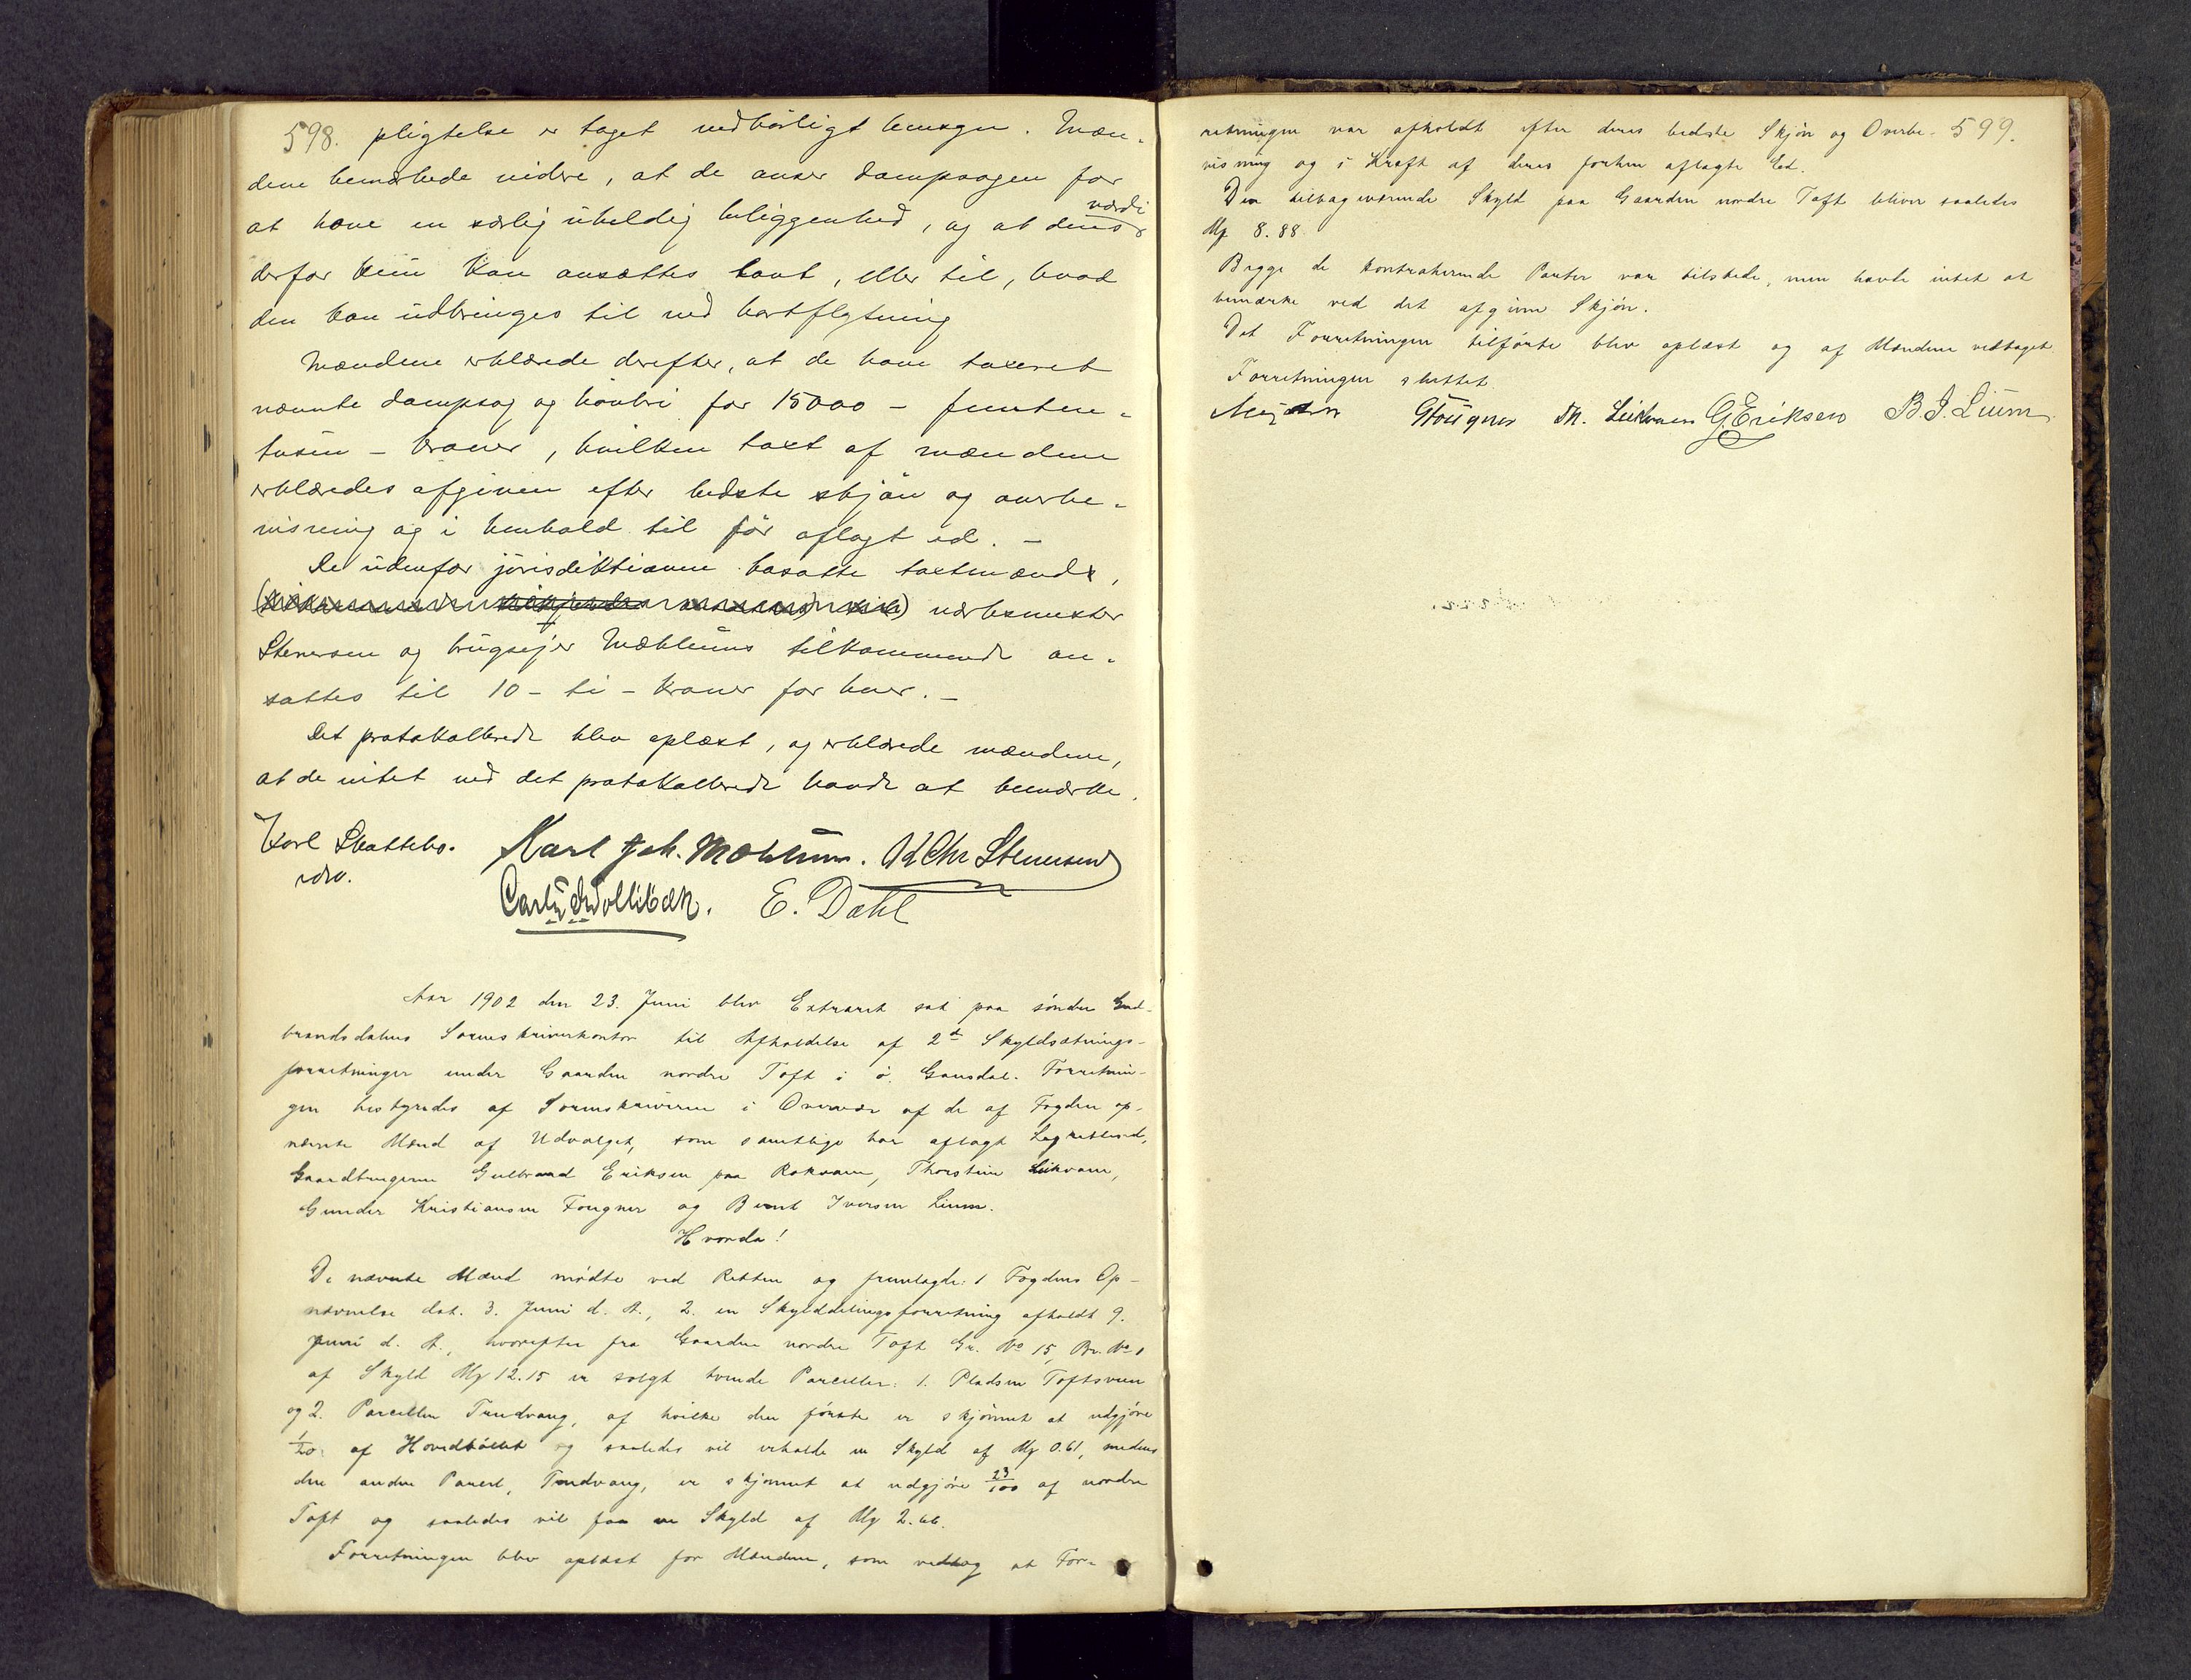 598. pligtelse er taget nedbörligt hensyn. Mæn-
dene bemærkede videre, at de anser dampsagen for
at have en særlig uheldig beliggenhed, og at dens værdi
derfor kun kan ansættes lavt, eller til, hvad
den kan udbringes til ved bortflytning
Mændene erklærede derefter, at de have taxeret
nævnte dampsag og hövleri for 15000 - femten-
tusin - kroner, hvilken taxt af mændene
erklæredes afgiven efter bedste skjön og overbe-
visning og i henhold til för aflagt ed. -
De udenfor jurisdiktionen bosatte taxtmænds,
værksmester
Stenersen og brugsejer Mæhlums tilkommende an-
sattes til 10 - ti - kroner for hver. -
Det protokollerede blev oplæst, og erklærede mændene,
at de intet ved det protokollerede havde at bemærke.
Karl Skattebo. Karl Joh. Mæhlum. Chr Stenersen
edv.
E. Dahl
Aar 1902 den 23. Juni blev Extraret sat paa söndre Gud-
brandsdalens Sorenskriverkontor til Afholdelse af 2de Skyldsætnings-
forretninger under Gaarden nordre Toft i ö. Gausdal. Forretnin-
gen bestyredes af Sorenskriveren i Overvær af de af Fogden op-
nævnte Mænd af Udvalget, som samtlige har aflagt Lagretteed,
Gaardbrugerne Gulbrand Eriksen paa Rokvam, Thorstein Leikvam,
Gunder Kristiansen Fougner og Bernt Iversen Lium.
Hvorda!
De nævnte Mænd mödte ved Retten og fremlagde: 1 Fogdens Op-
nævnelse dat. 3. Juni d. A., 2. en Skylddelingsforretning afholdt 9.
Juni d. A., hvorefter fra Gaarden nordre Toft Gr. No 15, Br. No 1
af Skyld Mk 12.15 er solgt tvende Parceller: 1. Pladsen Toftsveen
og 2. Parcellen Trudvang, af hvilke den förste er skjönnet at udgjöre
1/20 af Hovedbölet og saaledes vil erholde en Skyld af Mk 0.61, medens
den anden Parcel, Trudvang, er skjönnet at udgjöre 23/100 af nordre
Toft og saaledes vil faa en Skyld af Mk 2.66.
Forretningen blev oplæst for Mændene, som vedtog at For-
retningen var afholdt efter deres bedste Skjön og Overbe- 599.
visning og i Kraft af deres forhen aflagte Ed.
Den tilbageværende Skyld paa Gaarden nordre Toft bliver saaledes
Mk 8.88
Begge de kontraherende Parter var tilstede, men havde intet at
bemærke ved det afgivne Skjön.
Det Forretningen tilförte blev oplæst og af Mændene vedtaget.
Forretningen sluttet.
G Fougner Th. Leikvam G. Eriksen B. I. Lium